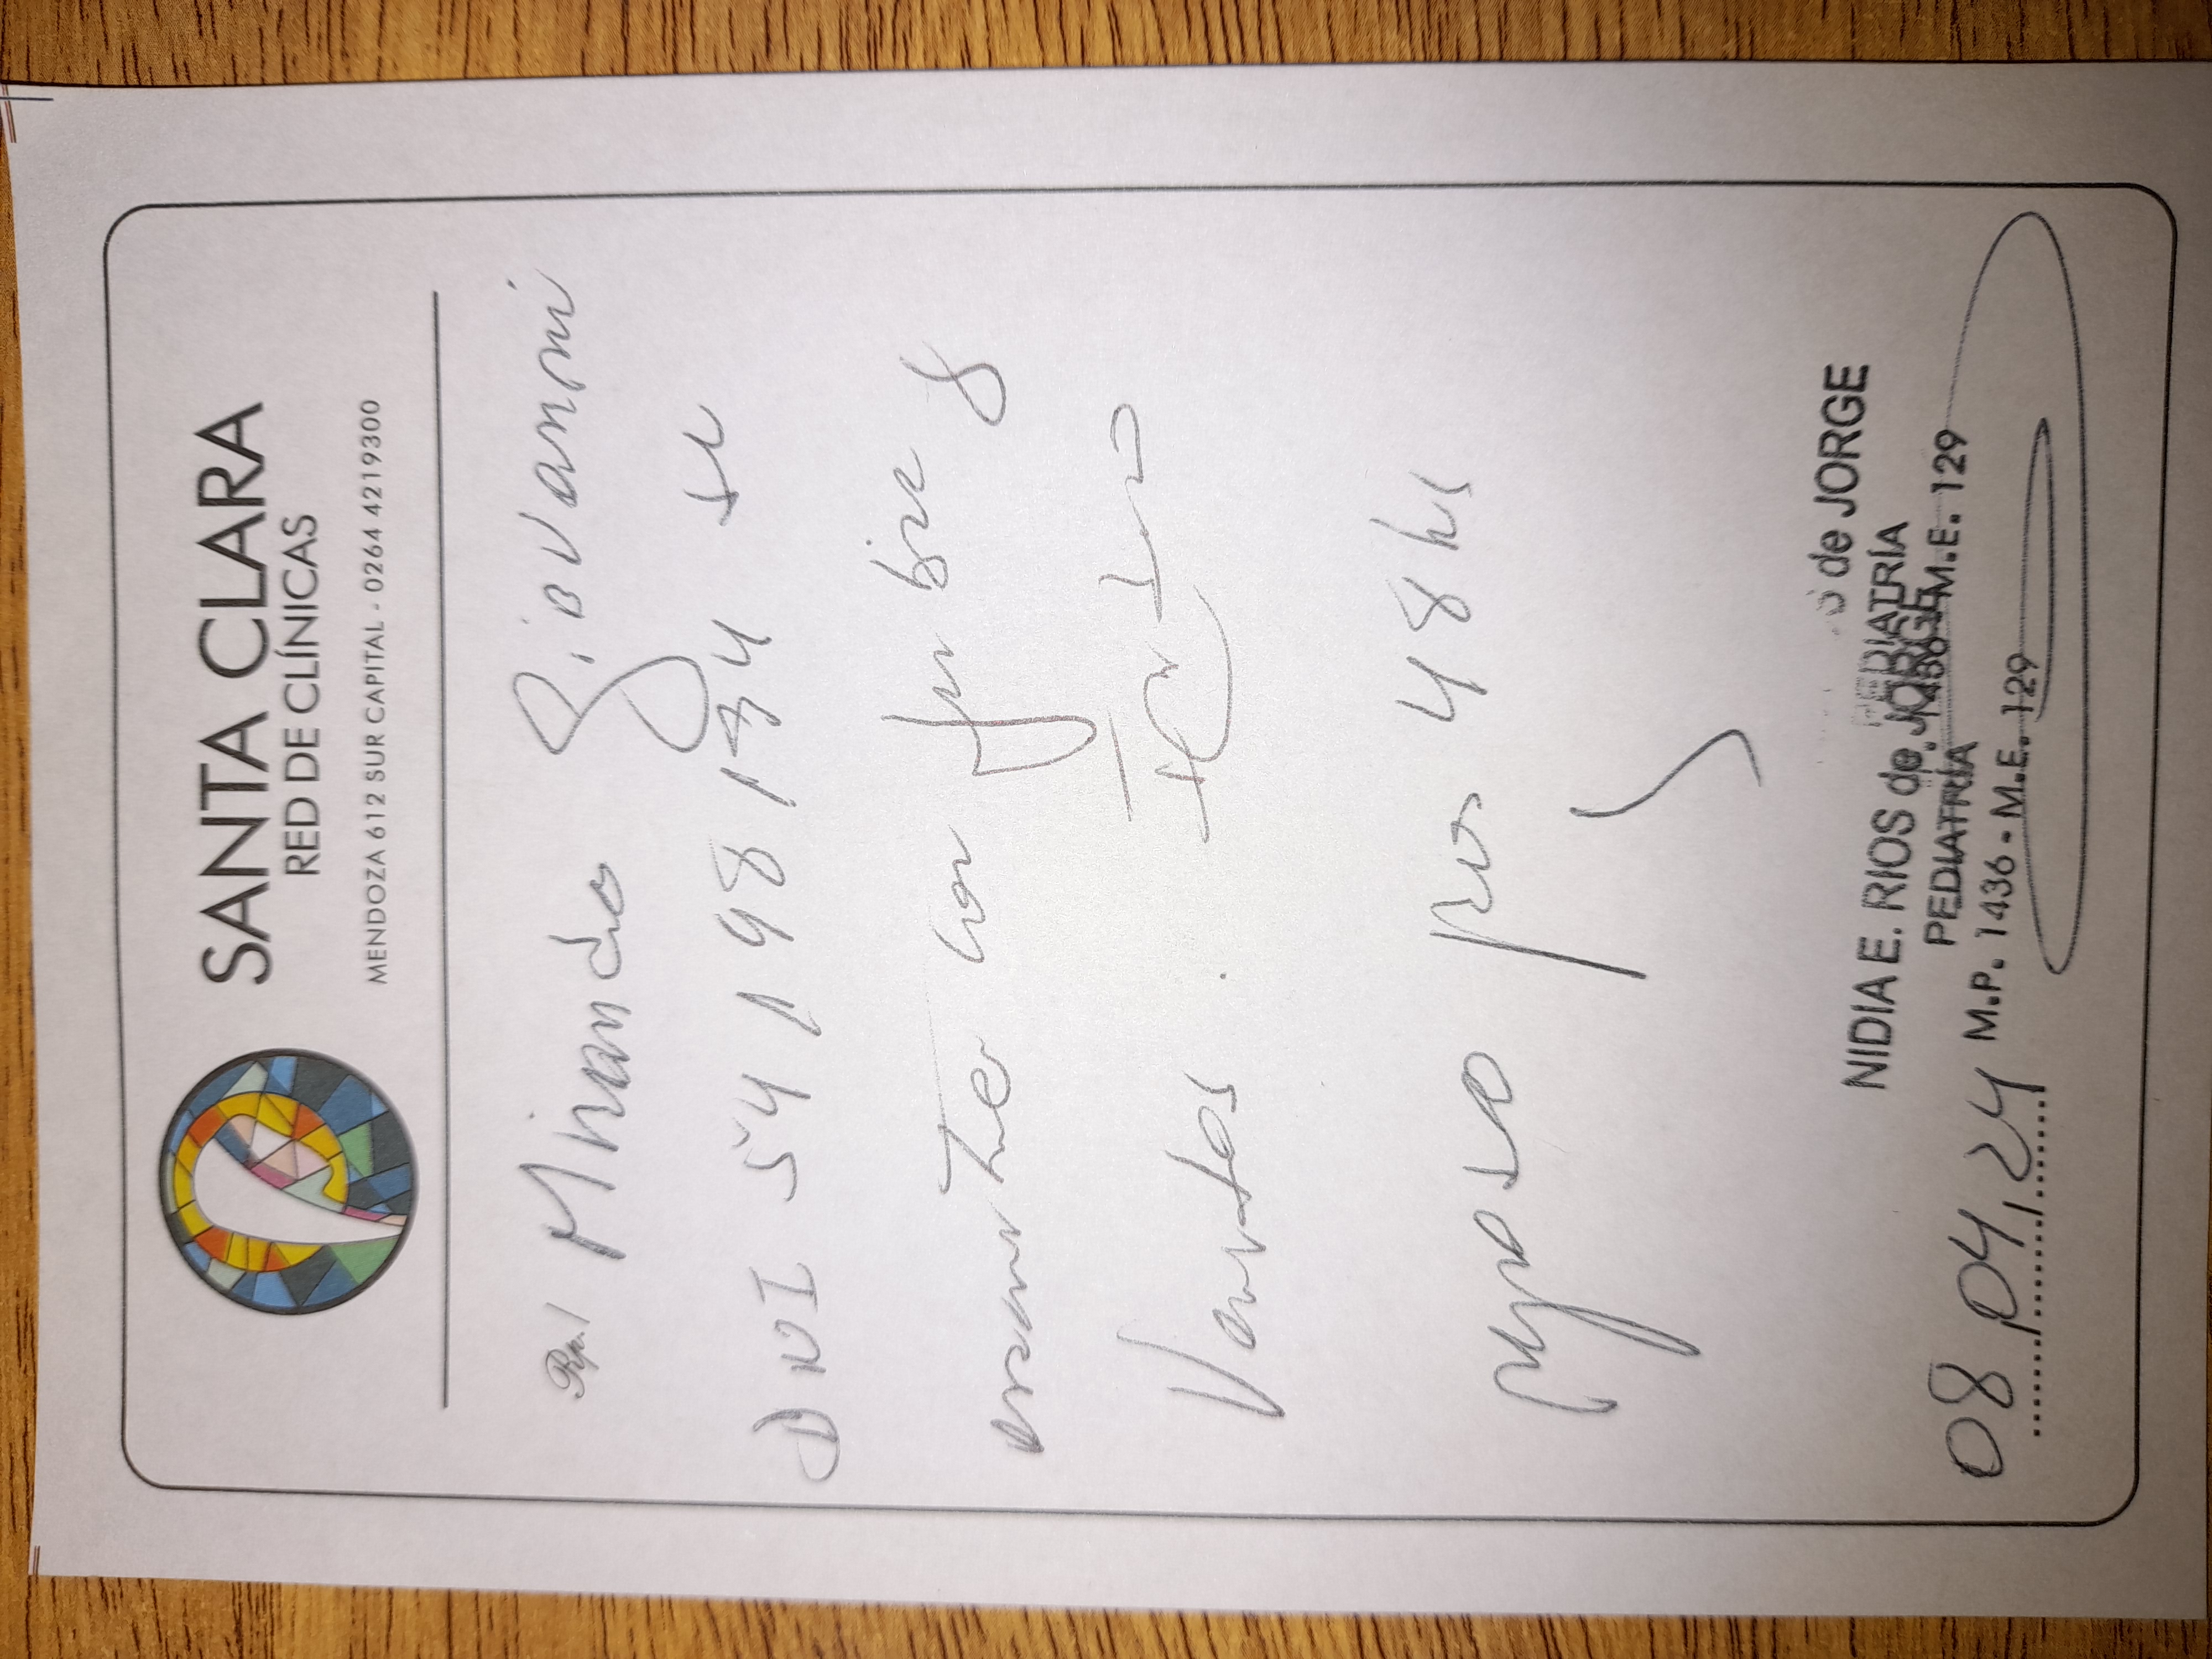 SANTA CLARA
RED DE CLÍNICAS
MENDOZA 612 SUR CAPITAL - 0264 4219300
Rp./ Miranda Giovanni
DNI 54198134 se
con fiebre y
Vomitos.
reposo por 48 hs
de JORGE
PEDIATRÍA
1436 M.E. 129
NIDIA E. RIOS de JORGE
PEDIATRÍA
M.P. 1436 - M.E. 129
08,04,24